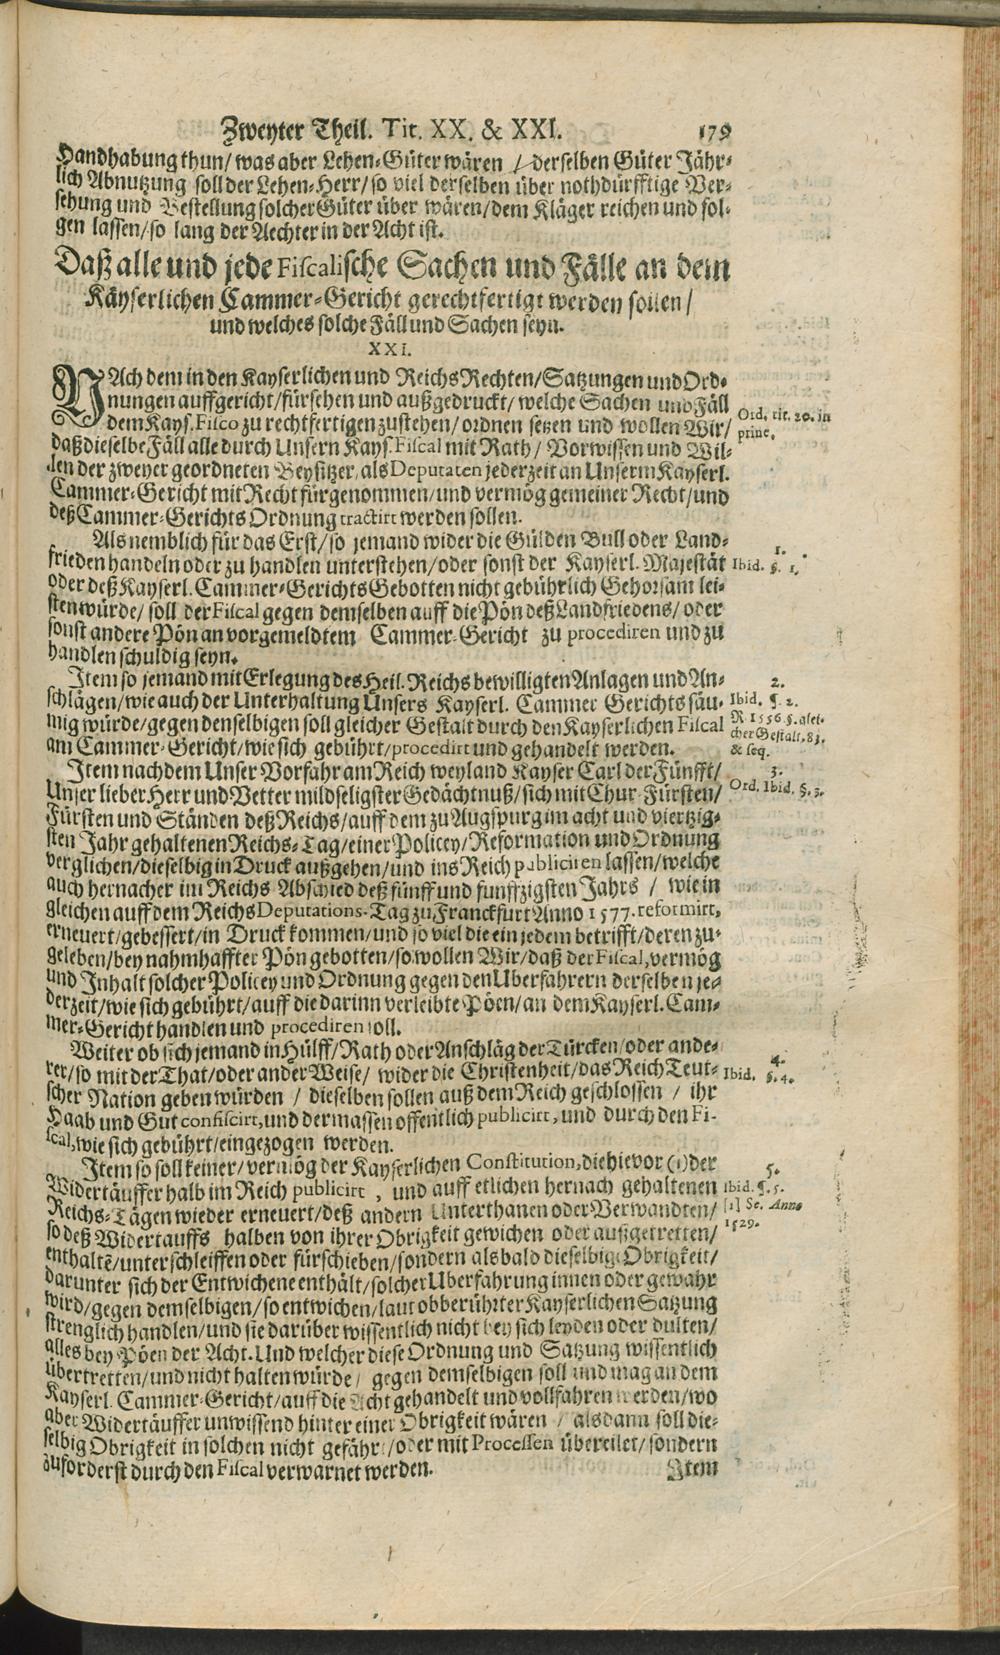 Zweyter Theil. Tit. XX. & XXI. 179
Handhabung thun/ was aber Lehen-Güter wären / derselben Güter Jähr-
lich Abnutzung soll der Lehen-Herr/ so viel derselben über nothdürfftige Ver-
sehung und Bestellung solcher Güter über wären/ dem Kläger reichen und fol-
gen lassen/ so lang der Aechter in der Acht ist.
Daß alle und jede Fiscalische Sachen und Fälle an dem
Käyserlichen Cammer-Gericht gerechtfertigt werden sollen/
und welches solche Fäll und Sachen seyn.
XXI.
NAch dem in den Kayserlichen und Reichs Rechten/ Satzungen und Ord-
nungen auffgericht/ fürsehen und außgedruckt/ welche Sachen und Fäll
dem Kays. Fisco zu rechtfertigen zustehen/ ordnen setzen und wollen Wir/
Ord. tit. 20. in
princ.
daß dieselbe Fäll alle durch Unsern Kays. Fiscal mit Rath/ Vorwissen und Wil-
len der zweyer geordneten Beysitzer, als Deputaten jederzeit an Unserm Kayserl.
Cammer-Gericht mit Recht fürgenommen/ und vermög gemeiner Recht/ und
deß Cammer-Gerichts Ordnung tractirt werden sollen.
Als nemblich für das Erst/ so jemand wider die Gülden Bull oder Land-
1.
frieden handeln oder zu handlen unterstehen/ oder sonst der Kayserl. Majestät
Ibid. §. 1.
oder deß Kayserl. Cammer-Gerichts Gebotten nicht gebührlich Gehorsam lei-
sten würde/ soll der Fiscal gegen demselben auff die Pön deß Landfriedens/ oder
sonst andere Pön an vorgemeldtem Cammer-Gericht zu procediren und zu
handlen schuldig seyn.
Item so jemand mit Erlegung des Heil. Reichs bewilligten Anlagen und An-
2.
schlägen/ wie auch der Unterhaltung Unsers Kayserl. Cammer Gerichts säu-
Ibid. §. 2.
mig würde/ gegen denselbigen soll gleicher Gestalt durch den Kayserlichen Fiscal
R. 1556 §. glei-
cher Gestalt, 83.
am Cammer-Gericht/ wie sich gebührt/ procedirt und gehandelt werden.
& seq.
Item nachdem Unser Vorfahr am Reich weyland Kayser Carl der Fünfft/
3.
Unser lieber Herr und Vetter mildseligster Gedächtnuß/ sich mit Chur-Fürsten/
Ord. Ibid. §. 3.
Fürsten und Ständen deß Reichs/ auff dem zu Augspurg im acht und viertzig-
sten Jahr gehaltenen Reichs-Tag/ einer Policey/ Reformation und Ordnung
verglichen/ dieselbig in Druck außgehen/ und ins Reich publiciren lassen/ welche
auch hernacher im Reichs Abschied deß fünff und funffzigsten Jahrs / wie in
gleichen auff dem Reichs Deputations-Tag zu Franckfurt Anno 1577. reformirt,
erneuert/ gebessert/ in Druck kommen/ und so viel die ein jedem betrifft/ deren zu-
geleben/ bey nahmhaffter Pön gebotten/ so wollen Wir/ daß der Fiscal, vermög
und Inhalt solcher Policey und Ordnung gegen den Uberfahrern derselben je-
derzeit/ wie sich gebührt/ auff die darinn verleibte Pöen/ an dem Kayserl. Cam-
mer-Gericht handlen und procediren soll.
Weiter ob sich jemand in Hülff/ Rath oder Anschläg der Türcken/ oder ande-
4.
rer/ so mit der That/ oder ander Weise/ wider die Christenheit/ das Reich Teut-
Ibid. §. 4.
scher Nation geben würden / dieselben sollen auß dem Reich geschlossen / ihr
Haab und Gut confiscirt, und dermassen offentlich publicirt, und durch den Fi-
scal, wie sich gebührt/ eingezogen werden.
Item so soll keiner/ vermög der Kayserlichen Constitution, die hievor (1) der
5.
Widertäuffer halb im Reich publicirt, und auff etlichen hernach gehaltenen
Ibid. §. 5.
Reichs-Tägen wieder erneuert/ deß andern Unterthanen oder Verwandten/
[1] Se. Anno
1529.
so deß Widertauffs halben von ihrer Obrigkeit gewichen oder außgetretten/
enthaltē/ unterschleiffen oder fürschieben/ sondern als bald dieselbige Obrigkeit/
darunter sich der Entwichene enthält/ solcher Uberfahrung innen oder gewahr
wird/ gegen demselbigen/ so entwichen/ laut obberührter Kayserlichen Satzung
strenglich handlen/ und sie darüber wissentlich nicht bey sich leyden oder dulten/
alles bey Pöen der Acht. Und welcher diese Ordnung und Satzung wissentlich
übertretten/ und nicht halten würde/ gegen demselbigen soll und mag an dem
Kayserl. Cammer-Gericht/ auff die Acht gehandelt und vollfahren werden/ wo
aber Widertäuffer unwissend hinter einer Obrigkeit wären / alsdann soll die-
selbig Obrigkeit in solchen nicht gefährt/ oder mit Processen übereilet/ sondern
zuforderst durch den Fiscal verwarnet werden.
Item